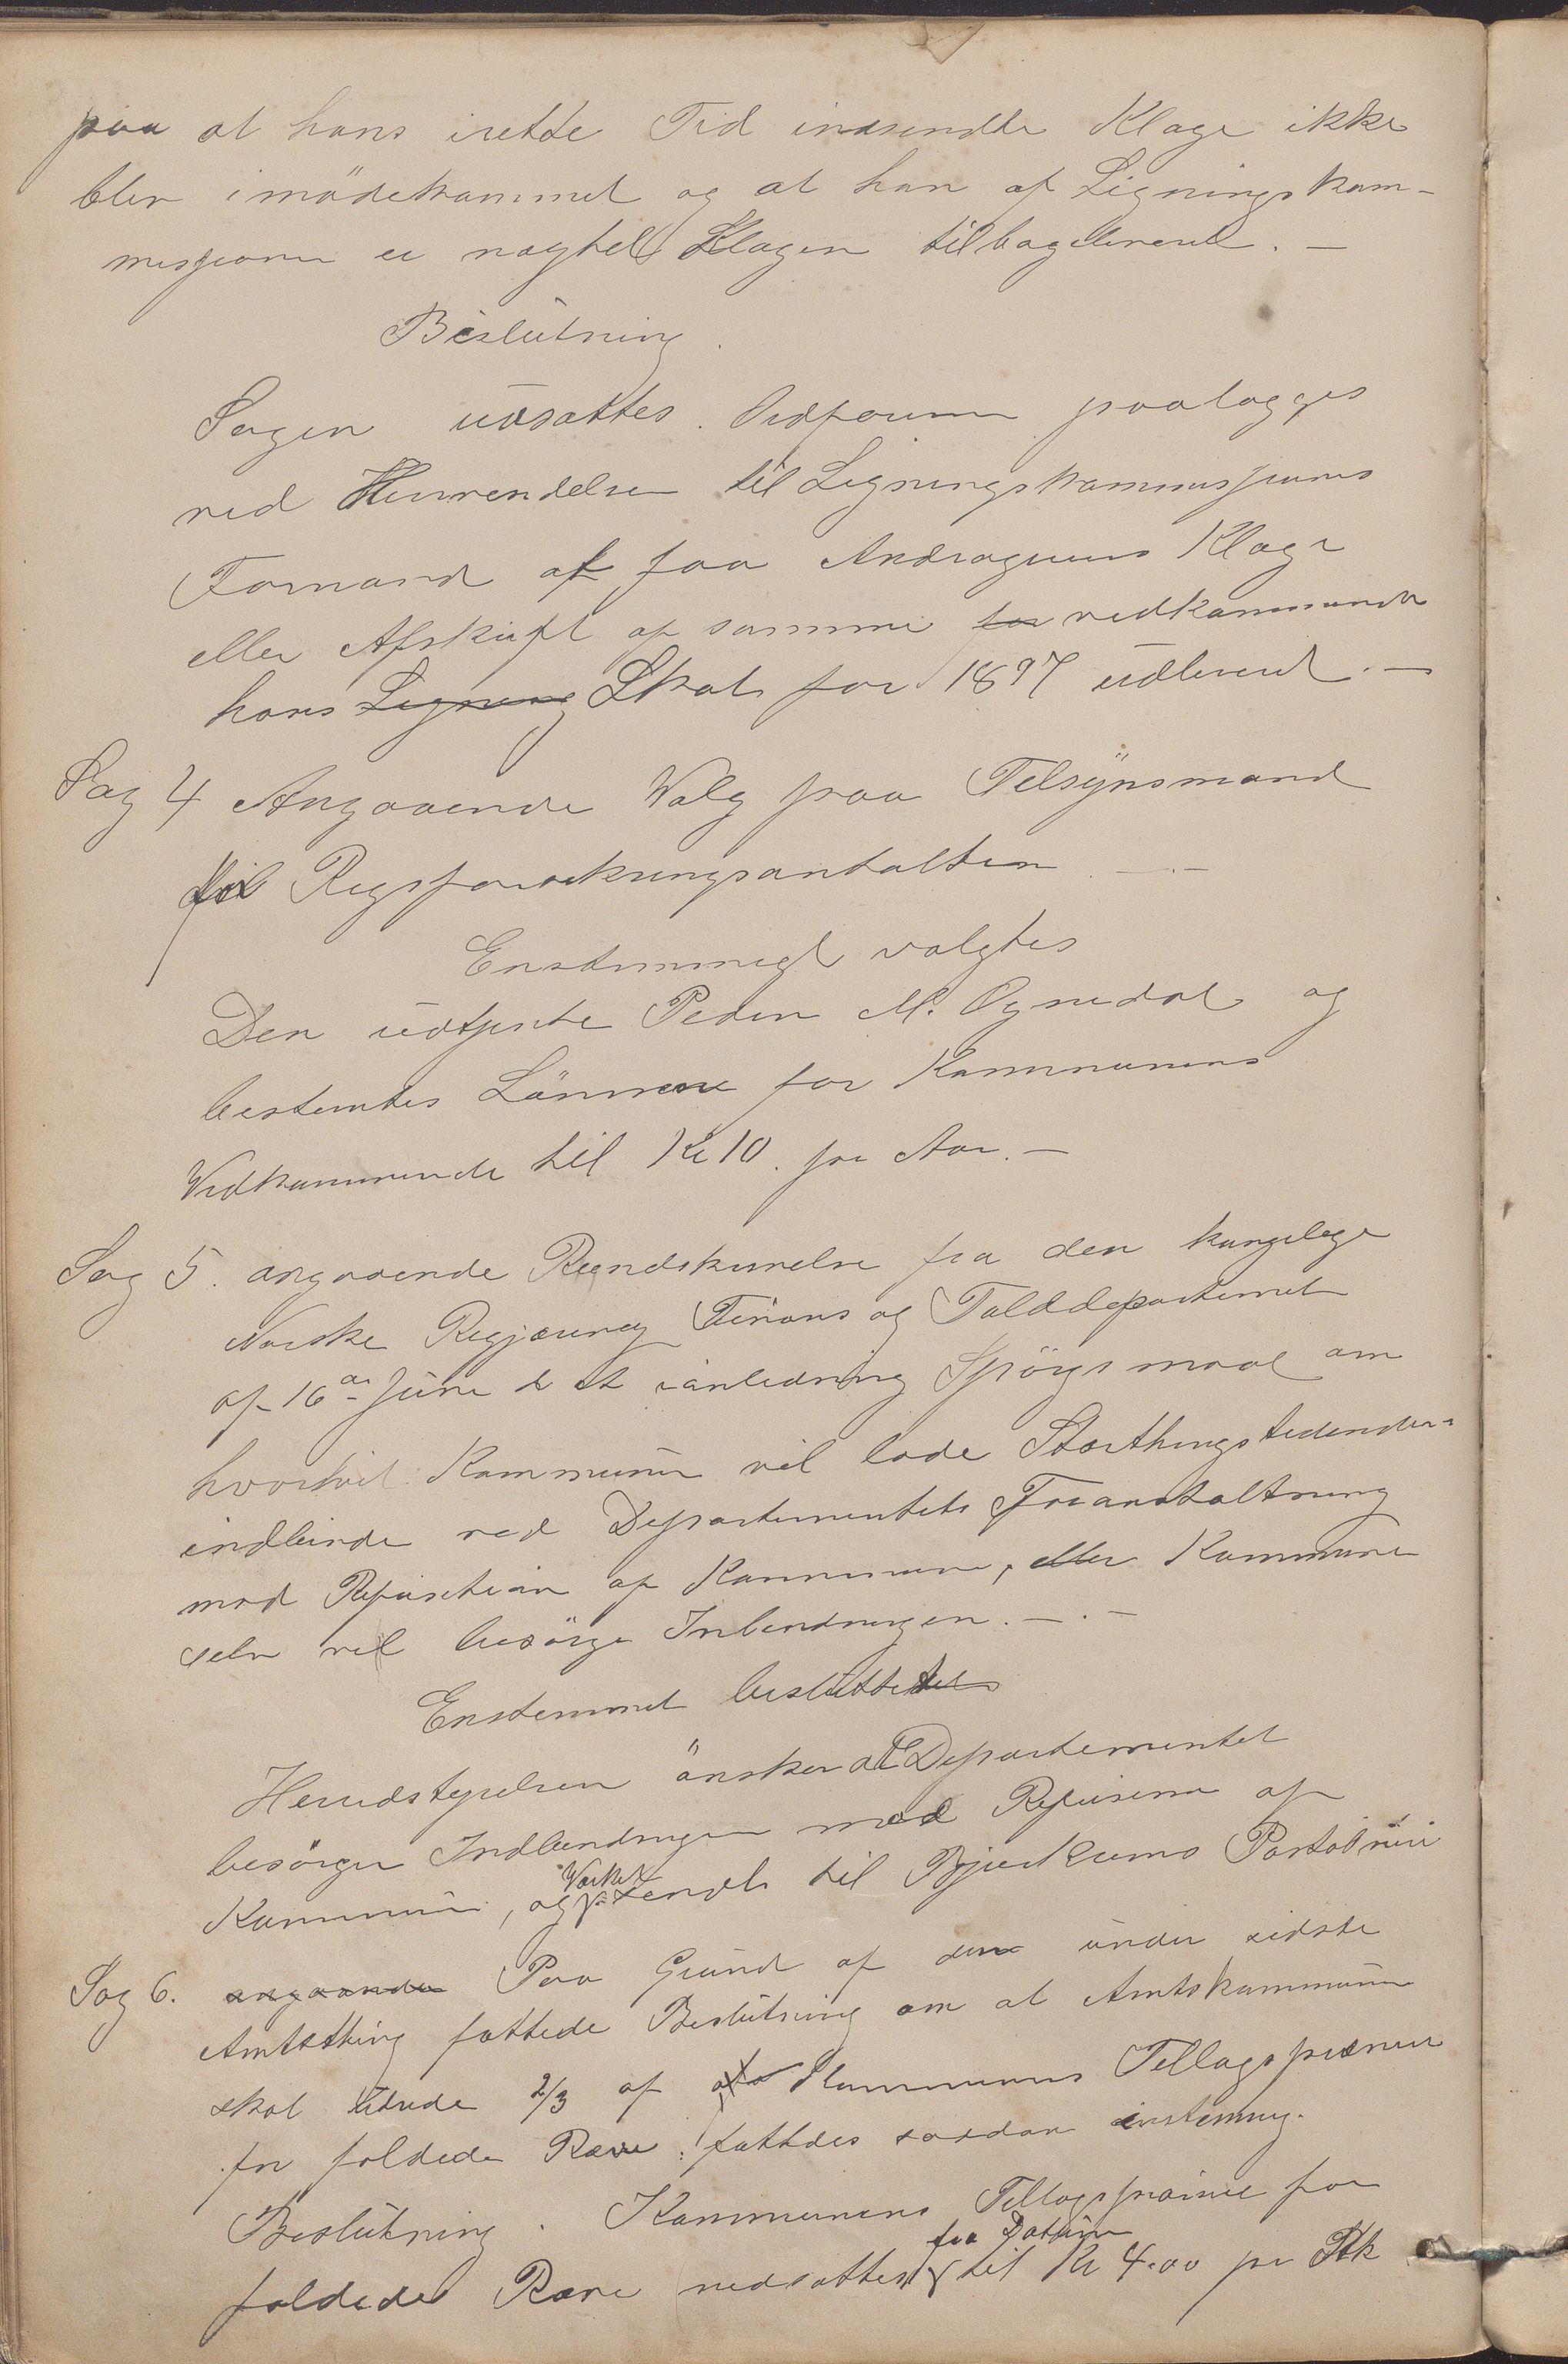 paa at hans irette Tid indsendte Klage ikke
blev imödekommet og at han af Ligningskom-
missionen er nægtet Klagen tilbageleveret. —
Beslutning.
Sagen udsættes. Ordføreren paalægges
ved Henvendelse til Ligningskommissionens
Formand at faa Andragerens Klage
eller Afskrift af samme for vedkommende
hans Ligning Skat for 1897 udleveret. —
Sag 4 Angaaende Valg paa Tilsynsmand
til Rigsforsikringsanstalten —.—
Enstemmigt valgtes
Den udtjente Peder M. Ognedal og
bestemtes Lönnen for Kommunens
Vedkommende til Kr 10. pr Aar. —
Sag 5. angaaende Rundskrivelse fra den kongelige
Norske Regjering Finans og Tolddepartemet
af 16de Juni d A ianledning Spörgsmaal om
hvorvidt Kommunen vil lade Storthingstidender
indbinde ved Departementets Foranstaltning
mod Refusion af Kommunen, eller Kommunen
selv vil besörge Inbindingen. —.—
Enstemmet besluttedes
Herredstyrelsen önsker at Departementet
besörger Indbindingen mod Refusion af
Kommunen, og Værket sendt til Bjerkreims Postaabneri
Sag 6. angaaende Paa Grund af den under sidste
Amtsthing fattede Beslutning om at Amtskommunen
skal udrede 2/3 af Kommunens Tillægspræmier
for fældede Ræve: fattedes saadan enstemig.
Beslutning. Kommunens Tillægspræmie for
fældede Ræve nedsættes fra Datum til Kr 4.00 pr Stk